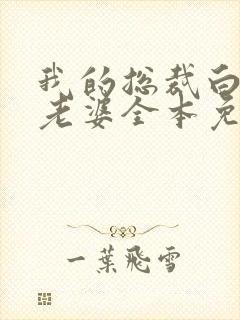 我的总裁白
老婆全本免
一葉飛雪